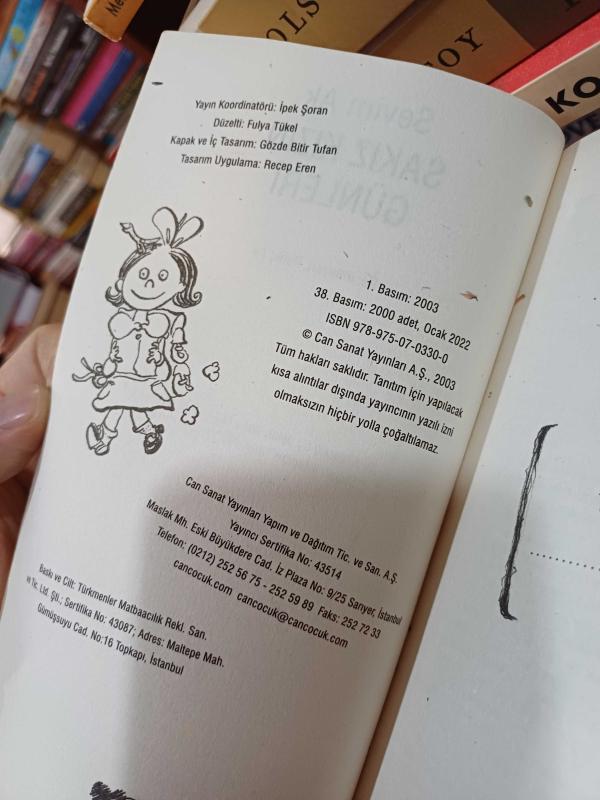 Me
OLS
OY
KO
Sevim Ak
SAKIZ
GÜNLERİ
Yayın Koordinatörü: İpek Şoran
Düzelti: Fulya Tükel
Kapak ve İç Tasarım: Gözde Bitir Tufan
Tasarım Uygulama: Recep Eren
1. Basım: 2003
38. Basım: 2000 adet, Ocak 2022
ISBN 978-975-07-0330-0
© Can Sanat Yayınları A.Ş., 2003
Tüm hakları saklıdır. Tanıtım için yapılacak
kısa alıntılar dışında yayıncının yazılı izni
olmaksızın hiçbir yolla çoğaltılamaz.
Can Sanat Yayınları Yapım ve Dağıtım Tic. ve San. A.Ş.
Yayıncı Sertifika No: 43514
Maslak Mh. Eski Büyükdere Cad. İz Plaza No: 9/25 Sarıyer, İstanbul
Telefon: (0212) 252 56 75 - 252 59 89 Faks: 252 72 33
cancocuk.com cancocuk@cancocuk.com
Baskı ve Cilt: Türkmenler Matbaacılık Rekl. San.
ve Tic. Ltd. Şti.; Sertifika No: 43087; Adres: Maltepe Mah.
Gümüşsuyu Cad. No:16 Topkapı, İstanbul